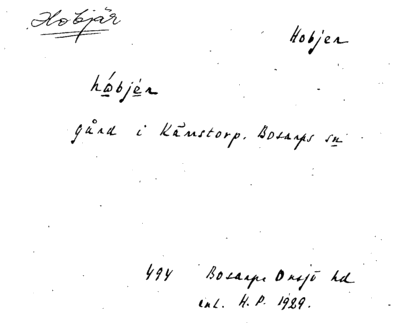 Hobjär
Hobjer
hǿbjér
gård i Kånstorp. Bosarps sn
494 Bosarps Onsjö hd
enl. H. P. 1929.